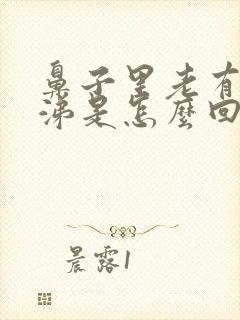 鼻子里老有
涕是怎麼回
晨露1